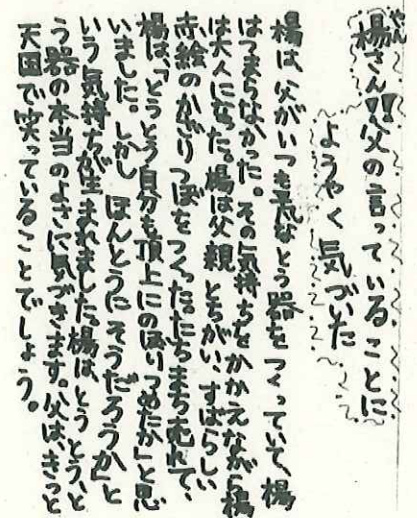 やん
楊さん!!父の言っていることに
ようやく気づいた
楊は、父がいつも荒なとう器をつくっていて、楊
はつまらなかった。その気持ちをかかえながら楊
は大人になった。楊は父親とちがい、すばらしい
赤絵のかざりつぼをつくった。たちまち売れて、
楊は、「とうとう自分も頂上にのぼりつめたか」と思
いました。しかし「ほんとうにそうだろうか」と
いう気持ちが生まれました。楊は、とうとう、と
う器の本当のよさに気づきます。父は、きっと
天国で笑っていることでしょう。